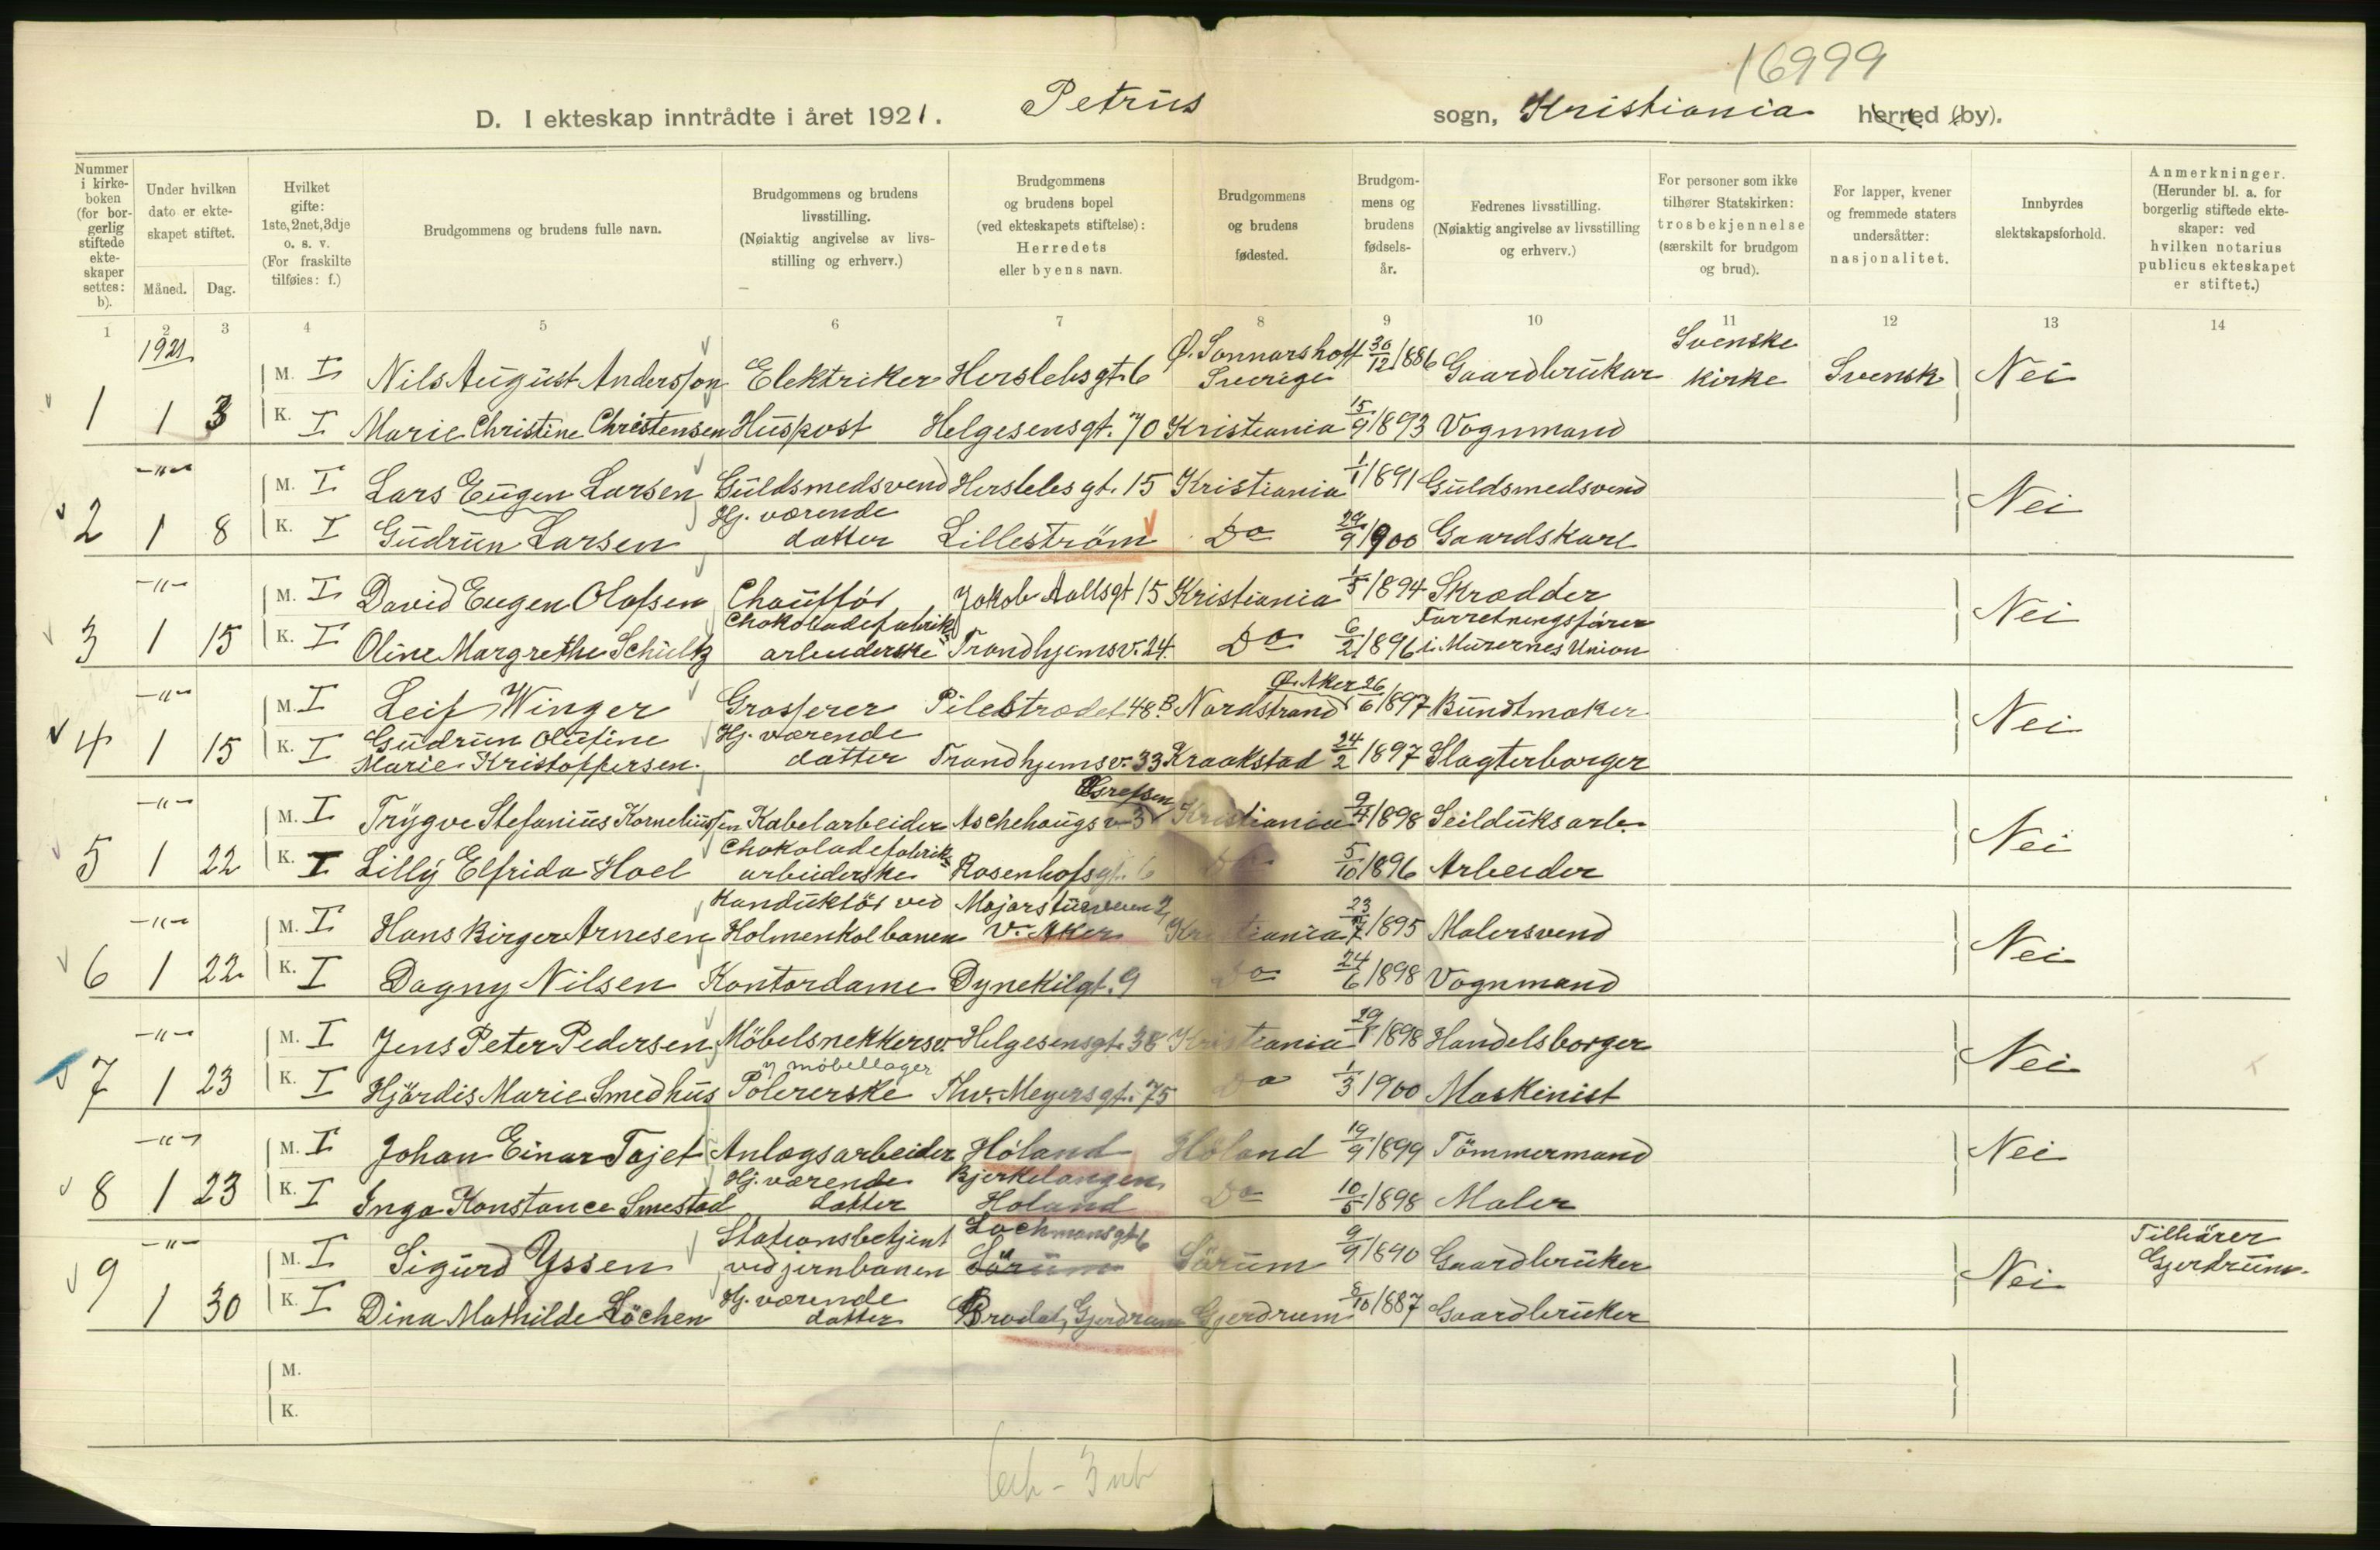 16999
D. I ekteskap inntrådte i året 1921. Petrus sogn, Kristiania herred (by).
Nummer i kirkeboken (for borgerlig stiftede ekteskaper settes: b).
Under hvilken dato er ekteskapet stiftet.
Måned. Dag.
Hvilket gifte: 1ste, 2net, 3dje o. s. v. (For fraskilte tilføies: f.)
Brudgommens og brudens fulle navn.
Brudgommens og brudens livsstilling. (Nøiaktig angivelse av livsstilling og erhverv.)
Brudgommens og brudens bopel (ved ekteskapets stiftelse): Herredets eller byens navn.
Brudgommens og brudens fødested.
Brudgommens og brudens fødselsår.
Fedrenes livsstilling. (Nøiaktig angivelse av livsstilling og erhverv.)
For personer som ikke tilhører Statskirken: trosbekjennelse (særskilt for brudgom og brud).
For lapper, kvener og fremmede staters undersåtter: nasjonalitet.
Innbyrdes slektskapsforhold.
Anmerkninger. (Herunder bl. a. for borgerlig stiftede ekteskaper: ved hvilken notarius publicus ekteskapet er stiftet.)
1 2 3 4 5 6 7 8 9 10 11 12 13 14
1921
M. I Nils August Andersson Elektriker Herslebsgt. 6 Ø. Sonnarshoff Sverige 30/12 1886 Gaardbruker Svenske Kirke Svensk Nei
1 1 3 K. I Marie Christine Christensen Huspost Helgesensgt. 70 Kristiania 15/9 1893 Vognmand
-"- M. I Lars Eugen Larsen Guldsmedsvend Herslebsgt. 15 Kristiania 1/1 1891 Guldsmedsvend Nei
2 1 8 K. I Gudrun Larsen Hj. værende datter Lilleström Do 29/9 1900 Gaardskarl
-"- M. I David Eugen Olafsen Chaufför Jakob Aallsgt 15 Kristiania 1/5 1894 Skrædder Nei
3 1 15 K. I Oline Margrethe Schultz Chokoladefabrikarbeiderske Trondhjemsv. 24. Do 6/2 1896 Forretningsförer i Murernes Union
-"- M. I Leif Winger Grosserer Pilestrædet 48 B. Ø. Aker Nordstrand 26/6 1897 Bundtmaker Nei
4 1 15 K. I Gudrun Olufine Marie Kristoffersen. Hj. værende datter Trondhjemsv. 33 Kraakstad 24/2 1897 Slagterborger
-"- M. I Trygve Stefanius Korneliussen Kabelarbeider Grefsen Aschehougsv. 3 Kristiania 9/4 1898 Seilduksarb. Nei
5 1 22 K. I Lilly Elfrida Hoel Chokoladefabrikarbeiderske Rosenhofsgt. 6 Do 5/10 1896 Arbeider
-"- M. I Hans Birger Arnesen Konduktör ved Holmenkolbanen Majorstuveien 2, V. Aker Kristiania 23/7 1895 Malersvend Nei
6 1 22 K. I Dagny Nilsen Kontordame Dynekilgt. 9 Do 24/6 1898 Vognmand
-"- M. I Jens Peter Pedersen Möbelsnekkersv. Helgesensgt. 38 Kristiania 29/1 1898 Handelsborger Nei
7 1 23 K. I Hjördis Marie Smedhus Polererske i möbellager Thv. Meyersgt. 75 Do 1/3 1900 Maskinist
-"- M. I Johan Einar Tojet Anlægsarbeider Höland Höland 19/9 1899 Tömmermand Nei
8 1 23 K. I Inga Konstance Smestad Hj. værende datter Bjerkelangen Höland Do 10/5 1898 Maler
-"- M. I Sigurd Yssen Stationsbetjent ved jernbanen Lochmansgt 6 Sörum Sörum 9/9 1890 Gaardbruker Nei Tilhörer Gjerdrum.
9 1 30 K. I Dina Mathilde Löchen Hj. værende datter Brodal, Gjerdrum Gjerdrum 8/10 1887 Gaardbruker
M.
K.